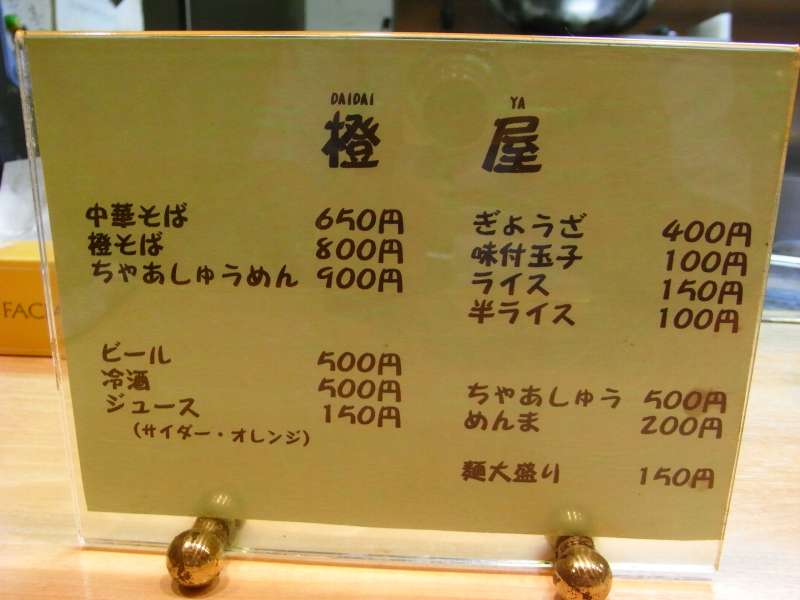 DAIDAI YA
橙 屋
中華そば 650円
橙そば 800円
ちゃあしゅうめん 900円
ビール 500円
冷酒 500円
ジュース 150円
(サイダー・オレンジ)
ぎょうざ 400円
味付玉子 100円
ライス 150円
半ライス 100円
ちゃあしゅう 500円
めんま 200円
麺大盛り 150円
FAC